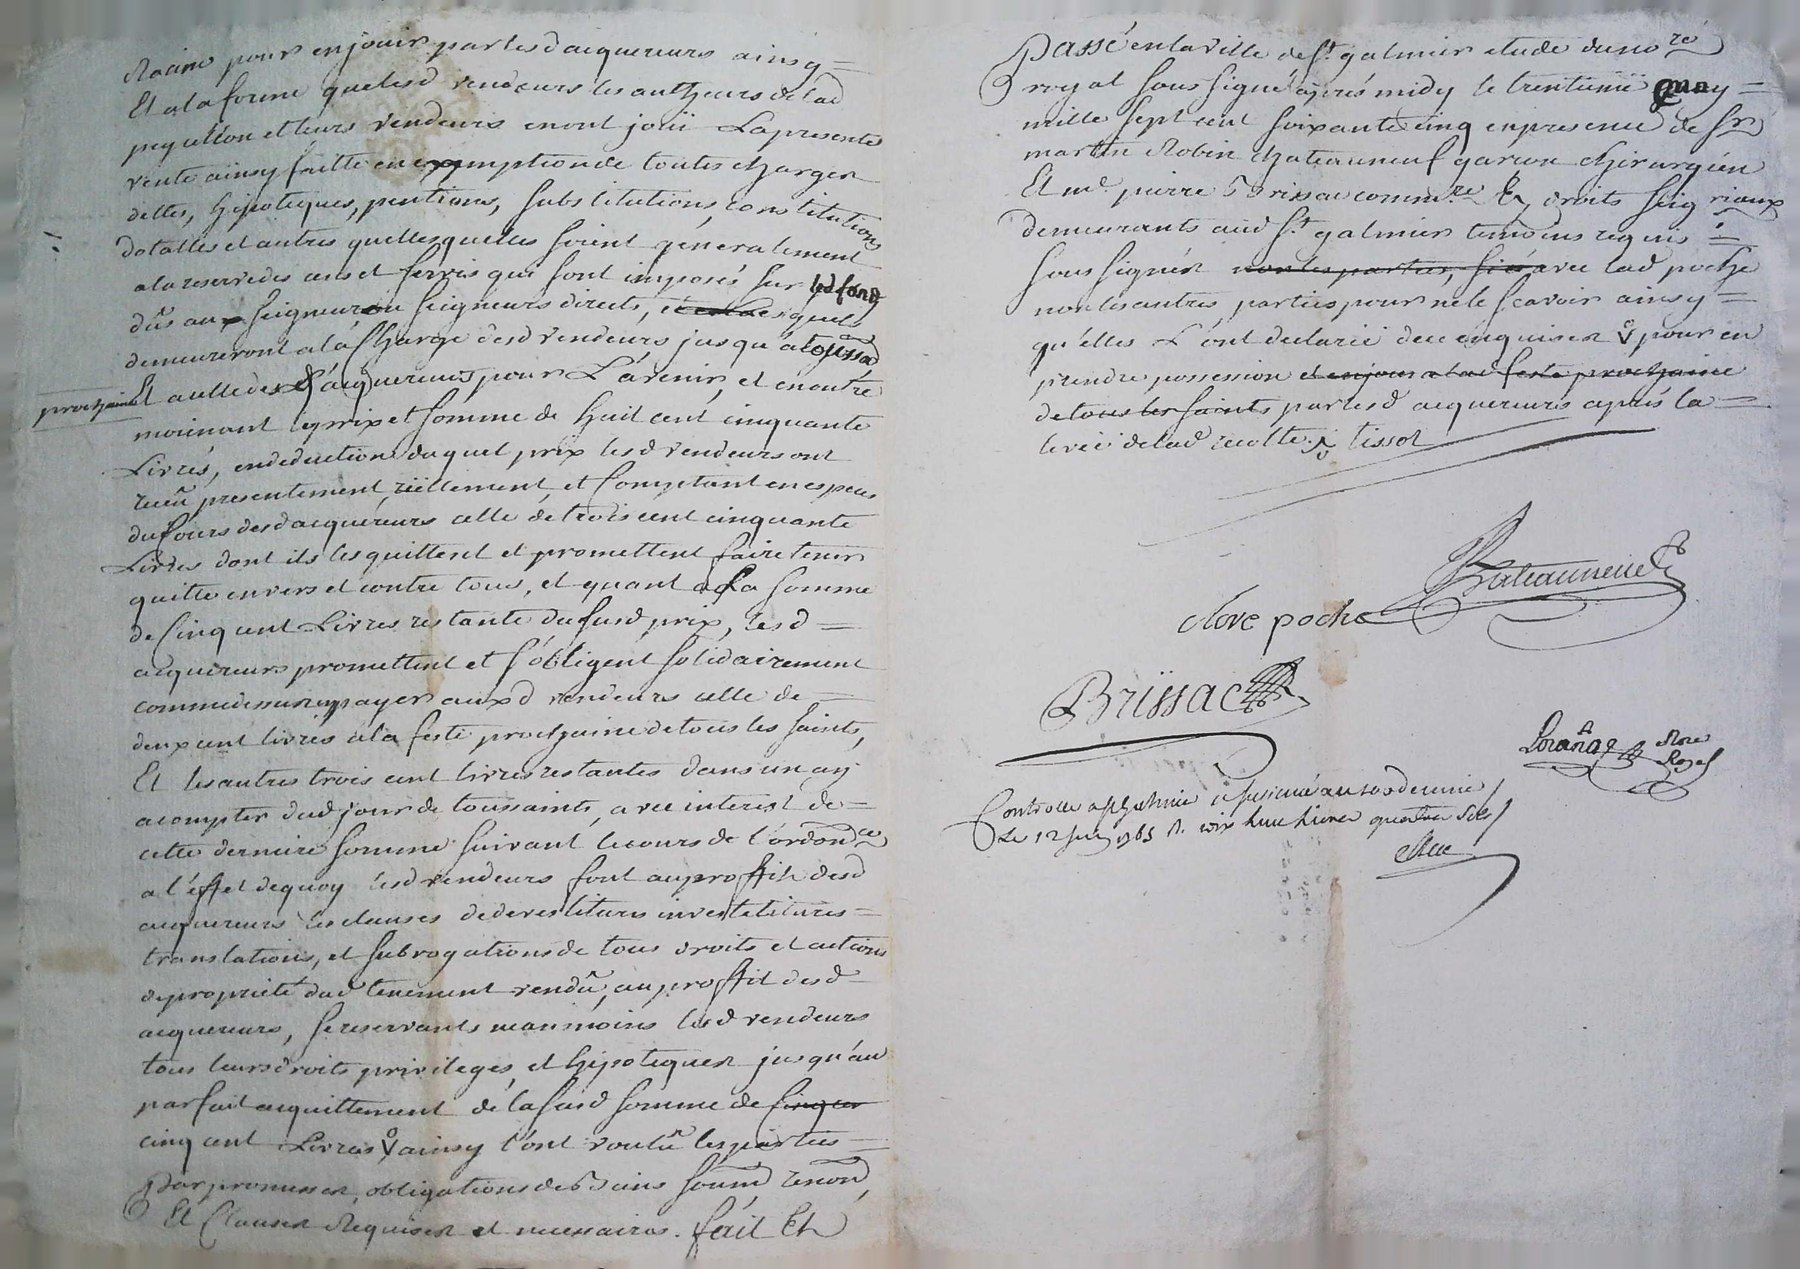 Racine pour en jouir par lesd acquereurs ainsy =
Et a la forme que lesd vendeurs les autheurs de lad
et leurs vendeurs en ont joüi La presente
vente ainsy faitte en exemption de toutes charges
dettes, hipoteques, pentions, substitutions, constitutions
dotalles et autres quelles quelles soient generalement
a la reserve des cens et servis qui sont imposés sur led fond
dûs aux seigneur ou seigneurs directs, lesquels
demeureront a la Charge desd vendeurs jusqu'a toussd
prochaine Et a celle des d acquereurs pour L'avenir, et en outre
moienant le prix et somme de huit cent cinquante
Livres, en deduction duquel prix lesd vendeurs ont
receû presentement réellement, et Comptant en especes
du Cours desd acquéreurs celle de trois cent cinquante
Livres dont ils les quittent et promettent faire tenir
quitte envers et contre tous, et quant a La somme
de Cinq cent Livres restante du susd prix, lesd =
acquereurs promettent et s'obligent solidairement
comme dessus payer auxd vendeurs celle de =
deux cent livres a la feste prochaine de tous les saints,
Et les autres trois cent livres restantes dans un an
a compter dud jour de toussaints, avec interest de =
cette derniere somme suivant le cours de l'ordonce
a l'effet de quoy lesd vendeurs font au proffit desd
acquereurs les clauses de devestitures investitures =
translations, et subrogations de tous droits et actions
de proprieté dud tenement vendû, au proffit desd =
acquereurs, se reservants neanmoins lesd vendeurs
tous leurs droits privileges, et hipoteques jusqu'au
parfait acquittement de la susd somme de cinq cen
cinq cent Livres ainsy l'ont voulû les parties =
Par promesses, obligations de biens soumd renond
Et Clauses Requises et necessaires. fait Et
Passé en la ville de St galmier etude du nore
royal soussigné après midy le trentieme may =
mille sept cent soixante cinq en presence de sr
martin Robin chateauneuf garcon chirurgien
Et me pierre Brissac commre Ez droits seigneuriaux
demeurants aud St galmier temoins requis =
soussignés non les parties, avec lad poche
non les autres parties pour ne le scavoir ainsy =
qu'elles L'ont declaré de ce enquises pour en
prendre possession et en jouir a lad feste prochaine
de tous les saints par lesd acquereurs après la =
levée de lad recolte. tissot
Chateauneuf
clore poche
Brissac
Lorange Nore
Royal
Controllé a St galmier
Le 12 juin 1765 R.